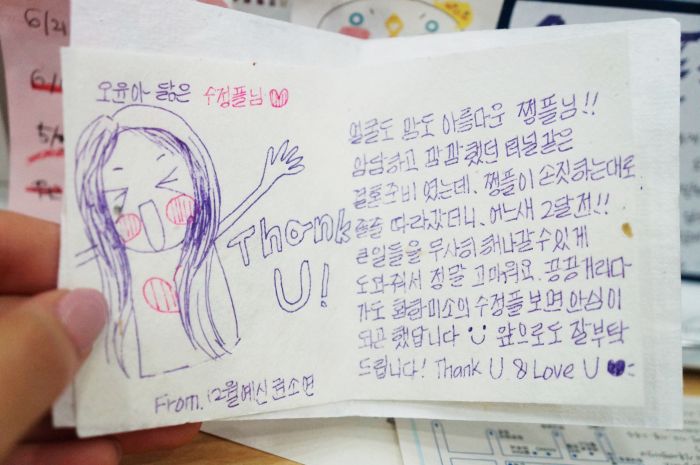 6/21
오윤아 닮은 수정플님
Thank
U!
From. 12월예신 권소연
얼굴도 맘도 아름다운 쩡플님!!
암담하고 깜깜했던 터널같은
결혼준비였는데. 쩡플이 손짓하는대로
졸졸 따라갔더니. 어느새 2달전!!
큰일들을 무사히 해나갈수있게
도와줘서 정말 고마워요. 끙끙거리다
가도 화람미소의 수정플 보면 안심이
되곤 했답니다 앞으로도 잘부탁
드립니다! Thank U & Love U